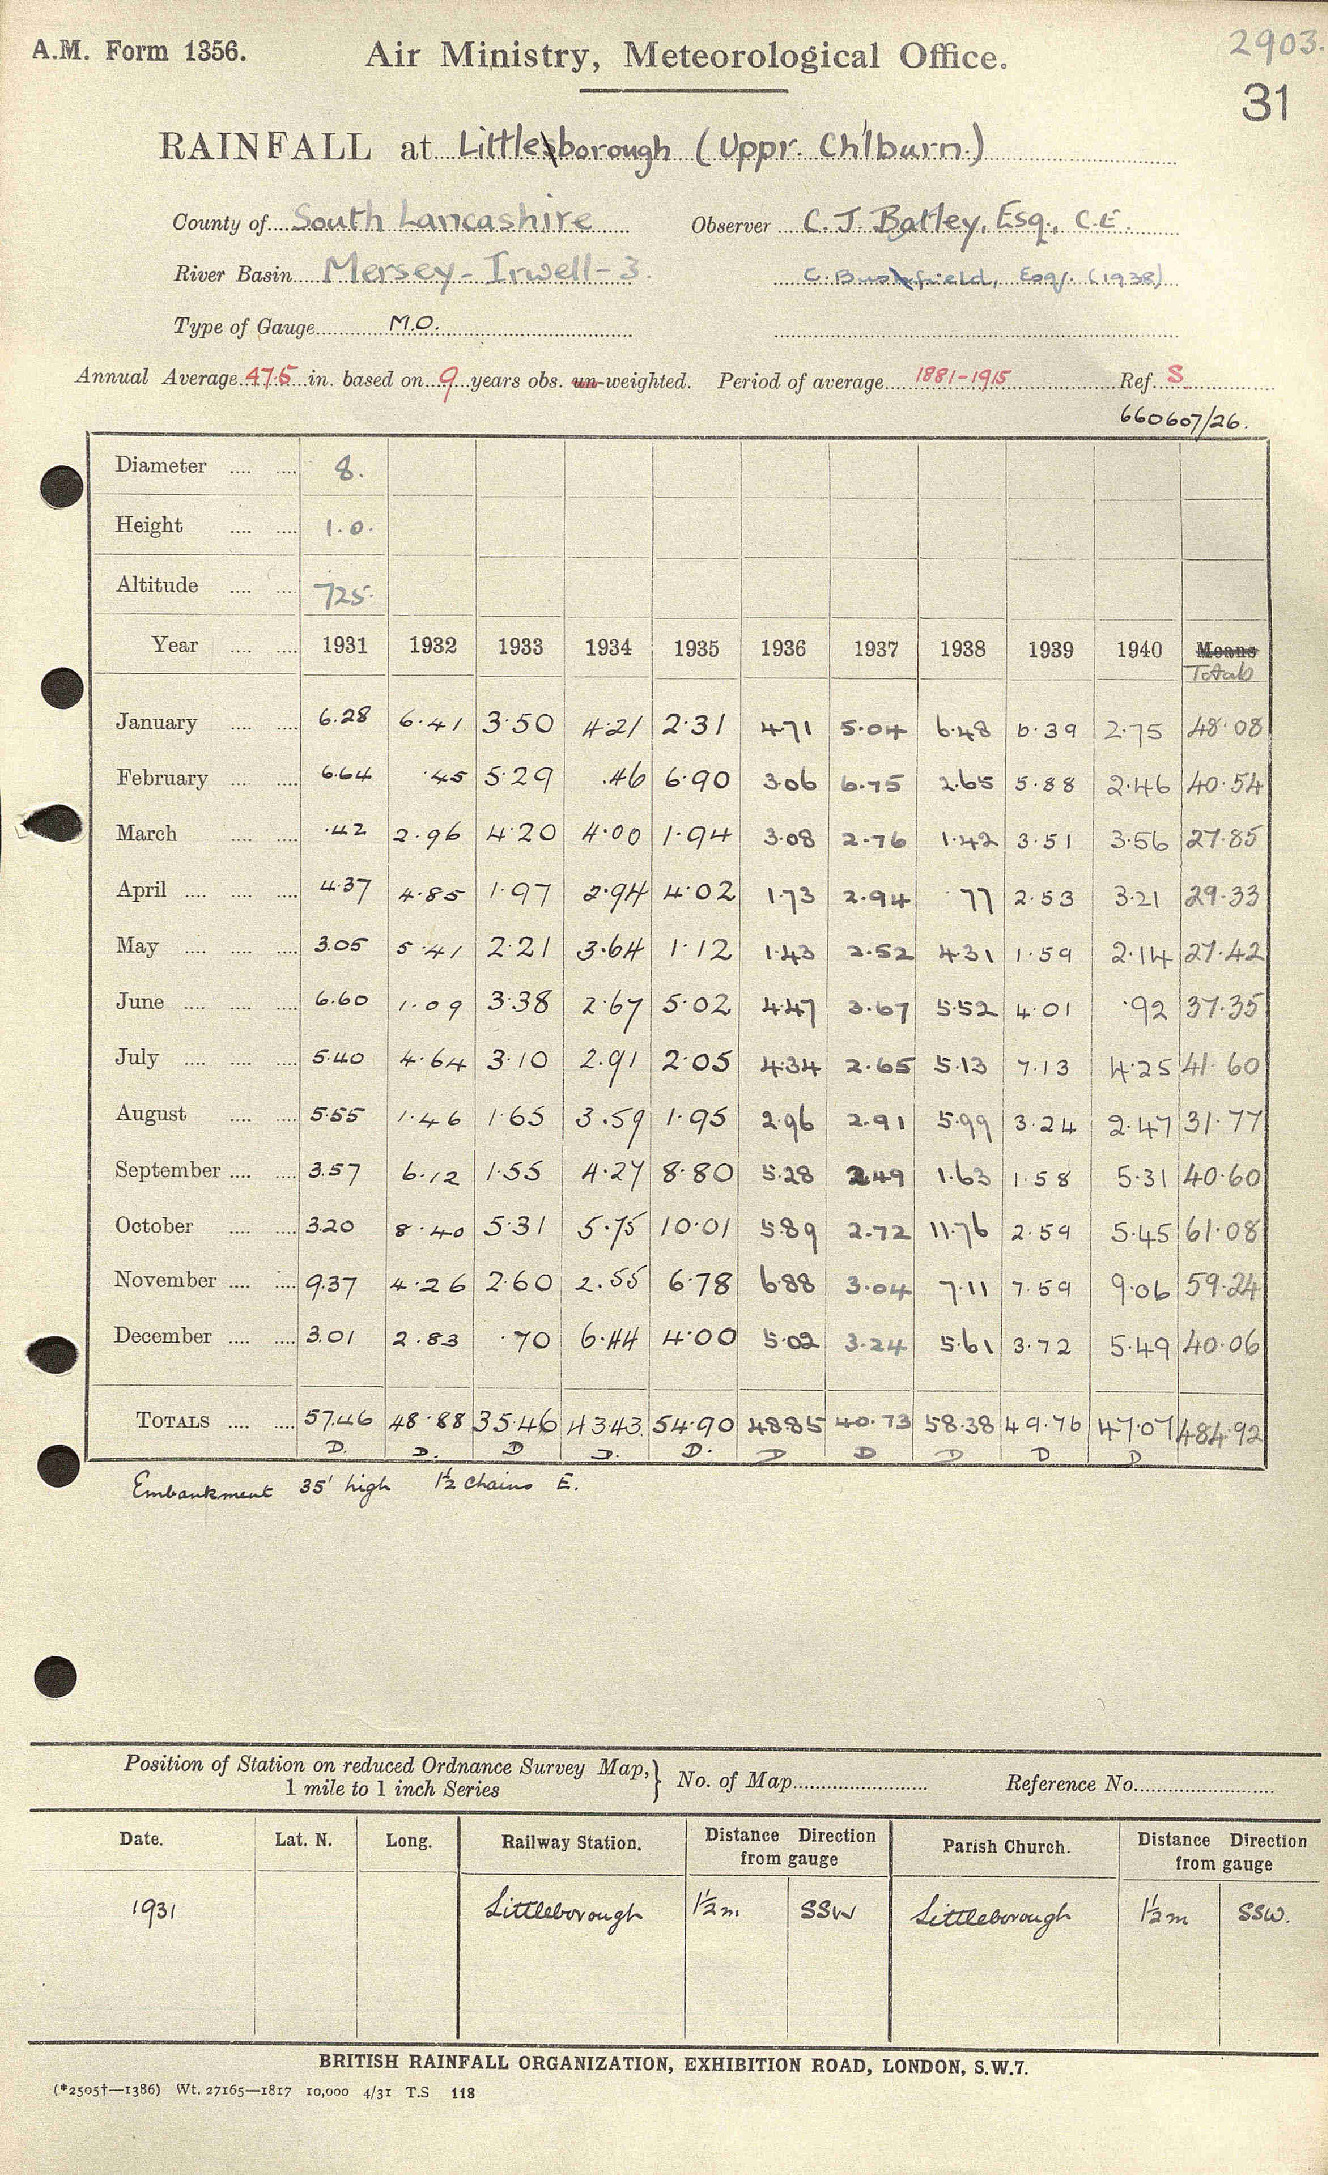 A.M. Form 1356.
Air Ministry, Meteorological Office.
2903.
31
RAINFALL at Littleborough (Uppr. Ch'lburn.)
County of South Lancashire Observer C. J. Batley, Esq., C.E.
River Basin Mersey - Irwell - 3. C. Bushfield, Esq. (1938)
Type of Gauge M.O.
Annual Average 47.5 in. based on 9 years obs. un-weighted. Period of average 1881-1915 Ref. S
660607/26.
Diameter .... .... 8.
Height .... .... 1.0.
Altitude .... .... 725.
Year .... .... 1931 1932 1933 1934 1935 1936 1937 1938 1939 1940 Means
Totals
January .... .... 6.28 6.41 3.50 4.21 2.31 4.71 5.04 6.48 6.39 2.75 48.08
February .... .... 6.64 .45 5.29 .46 6.90 3.06 6.75 2.65 5.88 2.46 40.54
March .... .... .42 2.96 4.20 4.00 1.94 3.08 2.76 1.42 3.51 3.56 27.85
April .... .... .... 4.37 4.85 1.97 2.94 4.02 1.73 2.94 .77 2.53 3.21 29.33
May .... .... .... 3.05 5.41 2.21 3.64 1.12 1.43 2.52 4.31 1.59 2.14 27.42
June .... .... .... 6.60 1.09 3.38 2.67 5.02 4.47 3.67 5.52 4.01 .92 37.35
July .... .... .... 5.40 4.64 3.10 2.91 2.05 4.34 2.65 5.13 7.13 4.25 41.60
August .... .... 5.55 1.46 1.65 3.59 1.95 2.96 2.91 5.99 3.24 2.47 31.77
September .... .... 3.57 6.12 1.55 4.27 8.80 5.28 2.49 1.63 1.58 5.31 40.60
October .... .... 3.20 8.40 5.31 5.75 10.01 5.89 2.72 11.76 2.59 5.45 61.08
November .... .... 9.37 4.26 2.60 2.55 6.78 6.88 3.04 7.11 7.59 9.06 59.24
December .... .... 3.01 2.83 .70 6.44 4.00 5.02 3.24 5.61 3.72 5.49 40.06
TOTALS .... .... 57.46 48.88 35.46 43.43 54.90 48.85 40.73 58.38 49.76 47.07 484.92
D. D. D D. D. D D D D D
Embankment 35' high 1½ chains E.
Position of Station on reduced Ordnance Survey Map, } No. of Map Reference No.
1 mile to 1 inch Series
Date. Lat. N. Long. Railway Station. Distance Direction from gauge Parish Church. Distance Direction from gauge
1931 Littleborough 1½ m. SSW Littleborough 1½ m SSW.
BRITISH RAINFALL ORGANIZATION, EXHIBITION ROAD, LONDON, S.W.7.
(*2505†—1386) Wt. 27165—1817 10,000 4/31 T.S 118